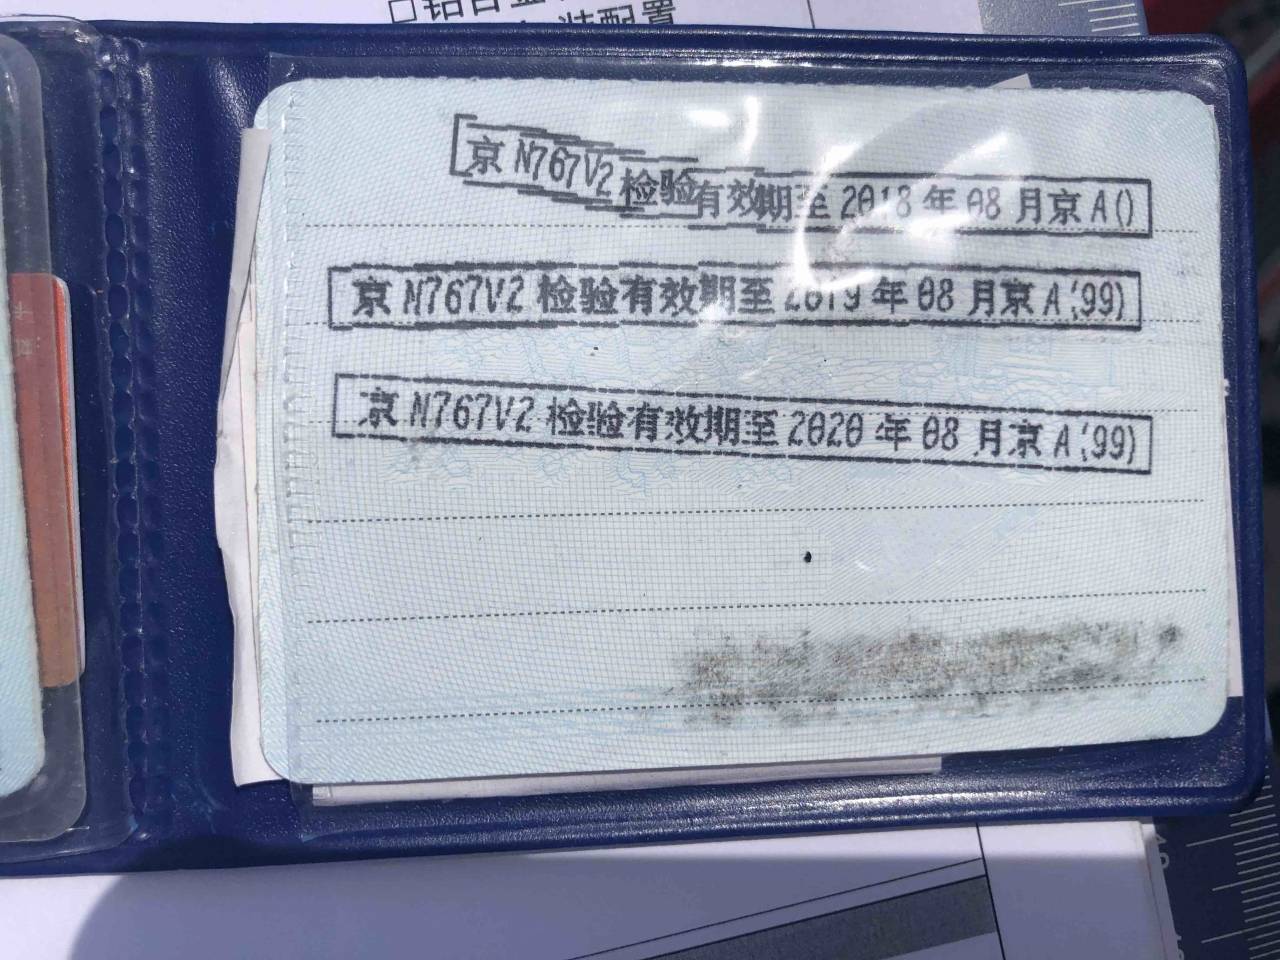 □铝合金
装配置
京N767V2检验有效期至2018年08月京A()
京N767V2检验有效期至2019年08月京A(99)
京N767V2检验有效期至2020年08月京A(99)